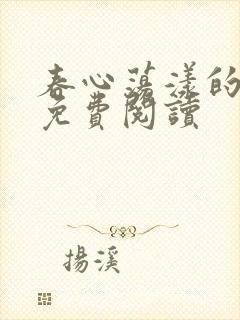 春心蕩漾的
免費閱讀
揚溪